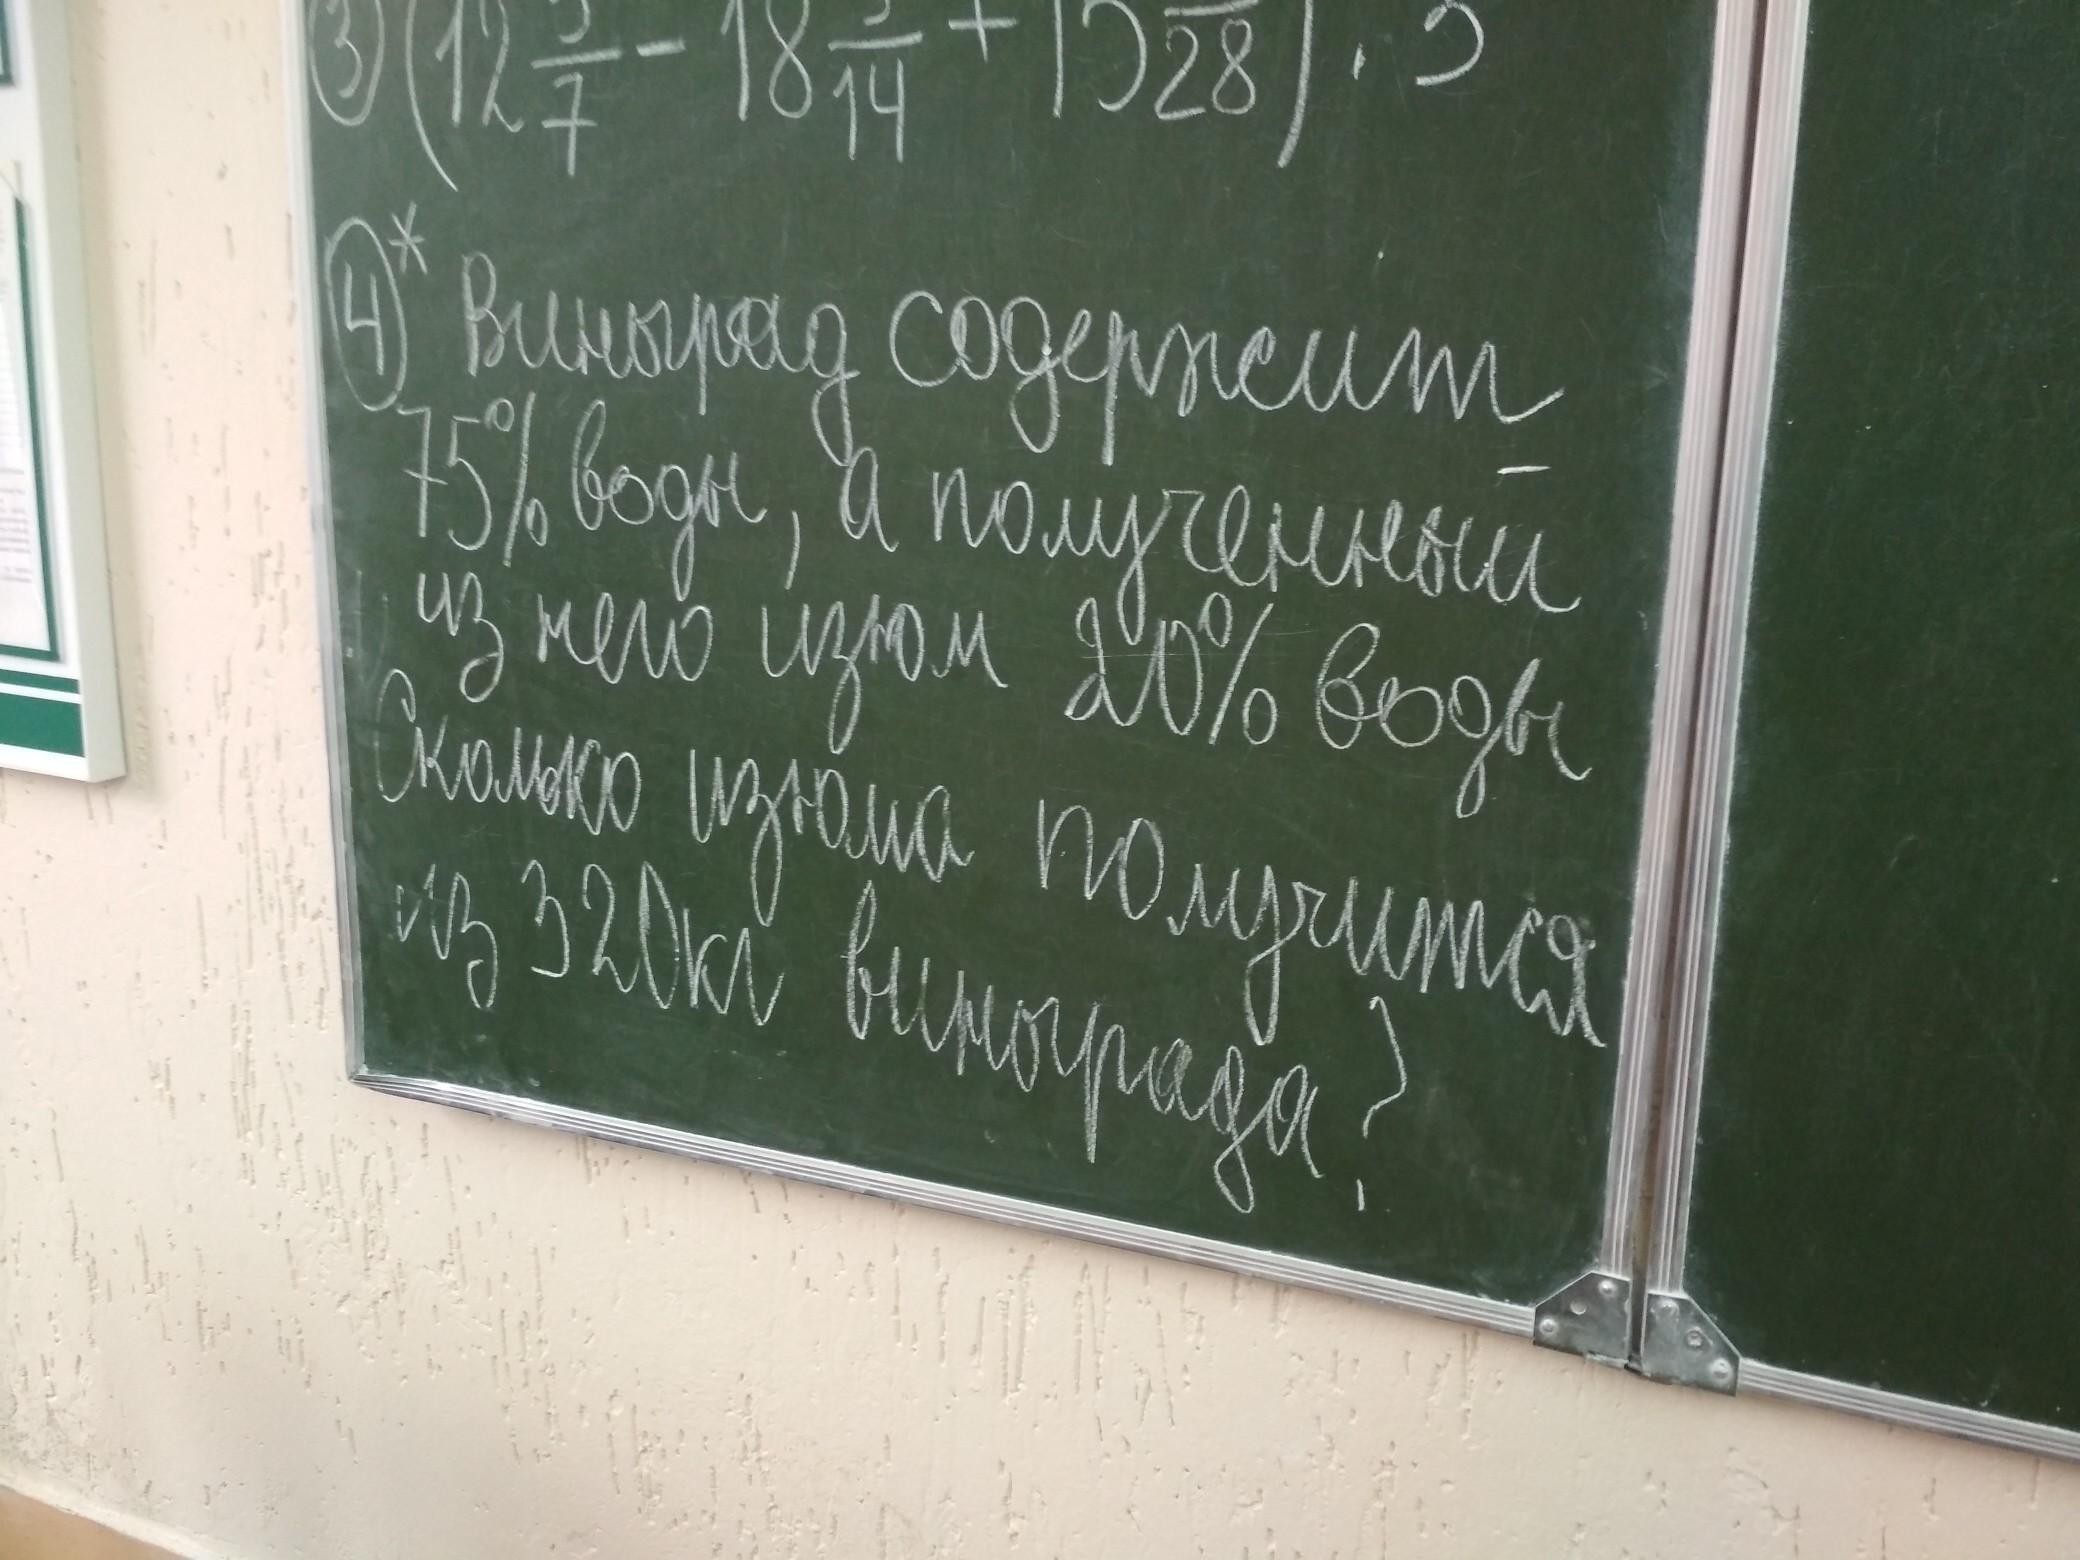 ③ (12 /7 - 18 /14 + 15 /28) ·
④* Виноград содержит
75% воды, а полученный
из него изюм 20% воды
Сколько изюма получится
из 320кг винограда?